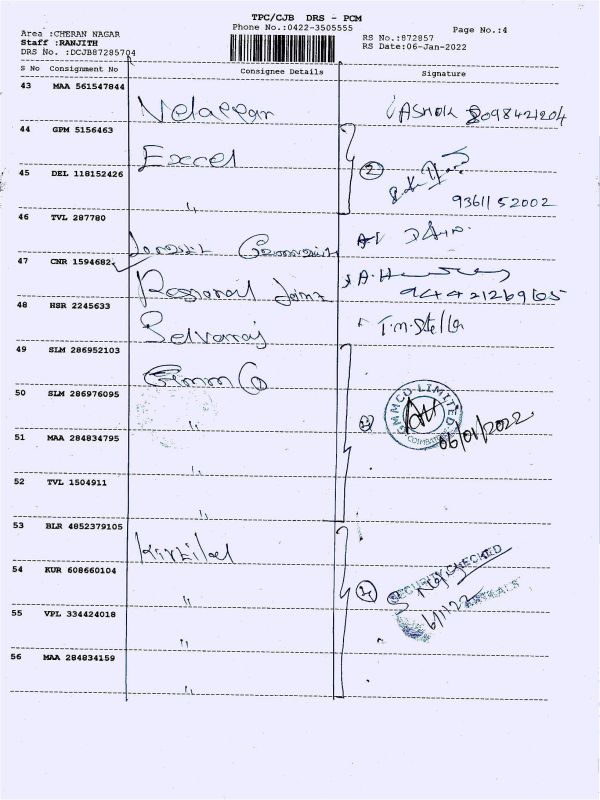 TPC/CJB DRS - PCM
Phone No.:0422-3505555
Page No.:4
Area :CHERAN NAGAR
Staff :RANJITH
DRS No. :DCJB87285704
RS No.:872857
RS Date:06-Jan-2022
S No Consignment No Consignee Details Signature
43 MAA 561547844
ASHOK 8098421204
44 GPM 5156463
Excel
45 DEL 118152426
2
9361152002
"
46 TVL 287780
47 CNR 1594682
9442126965
48 HSR 2245633
Selvaraj T.M.Stella
49 SLM 286952103
50 SLM 286976095
GMMCO LIMITED
COIMBATORE
06/01/2022
"
51 MAA 284834795
"
52 TVL 1504911
"
53 BLR 4852379105
54 KUR 608660104
4
SECURITY CHECKED
6/1/22
"
55 VPL 334424018
"
56 MAA 284834159
"